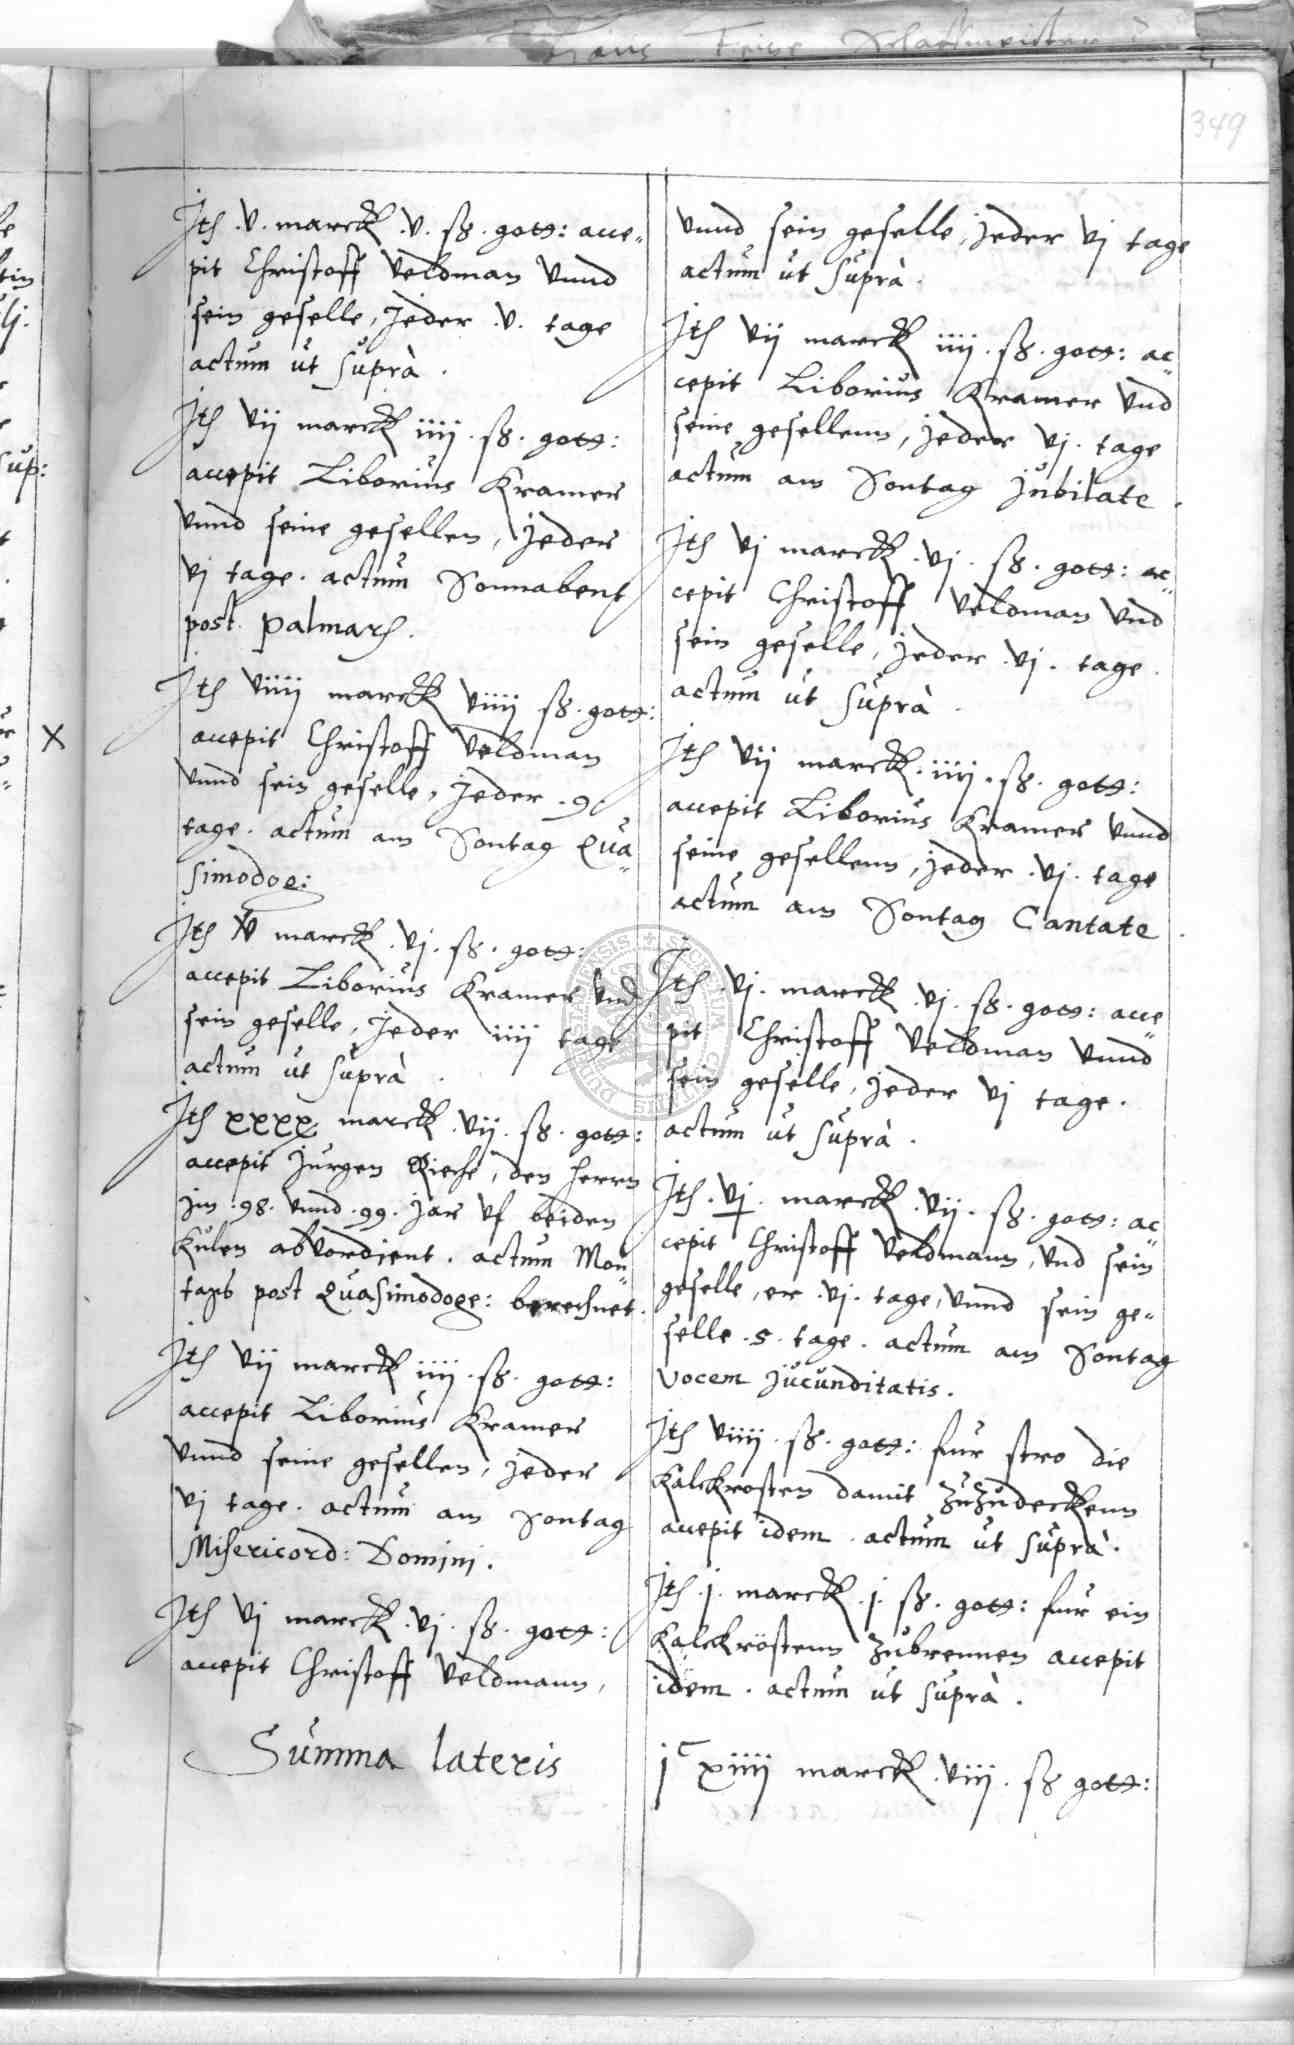 349
Jtem .v. marck .v. ß. gott: acce„
pit Christoff Veldman vnnd
sein geselle, jeder .v. tage
actum ut suprà.
Jtem vij marck iiij. ß. gott:
accepit Liborius Kramer
vnnd seine gesellen, jeder
vj tage. actum Sonnabent
post. Palmarum.
X
Jtem viiij marck viiij ß. gott:
accepit Christoff Veldman
vnnd sein geselle, jeder .9.
tage. actum am Sontag Qua„
simodoge:
Jtem marck .vj. ß. gott:
accepit Liborius Kramer vnd
sein geselle, jeder iiij tage
actum ut suprà.
Jtem xxxx marck .vij. ß. gott:
accepit Jurgen Rieche, den herrn
jm .98. vnnd .99. jar vf beiden
Kulen abvordient. actum Mon„
tags post Quasimodoge: berechnet.
Jtem vij marck iiij. ß. gott:
accepit Liborius Kramer
vnnd seine gesellen, jeder
vj tage. actum am Sontag
Misericord: Domini.
Jtem vj marck .vj. ß. gott:
accepit Christoff Veldmann,
vnnd sein geselle, jeder vj tage
actum ut suprà.
Jtem vij marck iiij. ß. gott: ac„
cepit Liborius Kramer vnd
seine gesellenn, jeder vj. tage
actum am Sontag jubilate.
Jtem vj marck .vj. ß. gott: ac„
cepit Christoff Veldman vnd
sein geselle, jeder .vj. tage.
actum ut suprà.
Jtem vij marck .iiij. ß. gott:
accepit Liborius Kramer vnnd
seine gesellenn, jeder .vj. tage
actum am Sontag Cantate.
Jtem .vj. marck .vj. ß. gott: acce„
pit Christoff Veldman vnnd
sein geselle, jeder vj tage.
actum ut suprà.
Jtem .vj. marck .vij. ß. gott: ac„
cepit Christoff Veldmann, vnd sein
geselle, er .vj. tage, vnnd sein ge„
selle .5. tage. actum am Sontag
vocem jucunditatis.
Jtem viiij. ß. gott: fur stro die
Kalckrosten damit zuzudeckenn
accepit idem. actum ut suprà.
Jtem .j. marck .j. ß. gott: fur ein
Kalckröstenn zubrennen accepit
idem. actum ut suprà.
Summa lateris
jᶜ xiiij marck .viij. ß gott: